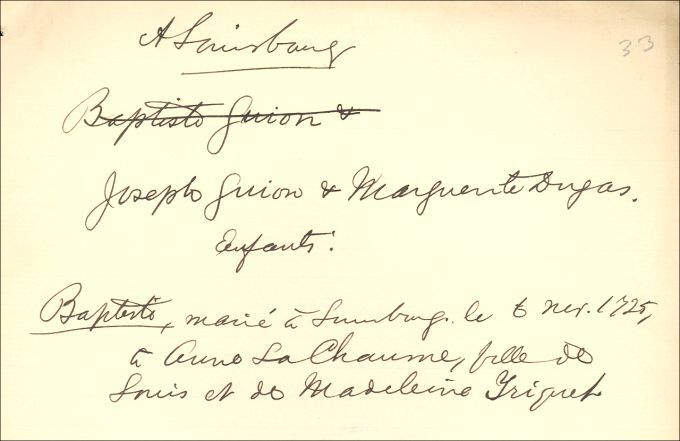 A Louisbourg
33
Baptiste Guion &
Joseph Guion & Marguerite Dugas.
Enfants:
Baptiste, marié à Louisbourg. le 6 nov. 1725,
à Anne LaChaume, fille de
Louis et de Madeleine Triquet